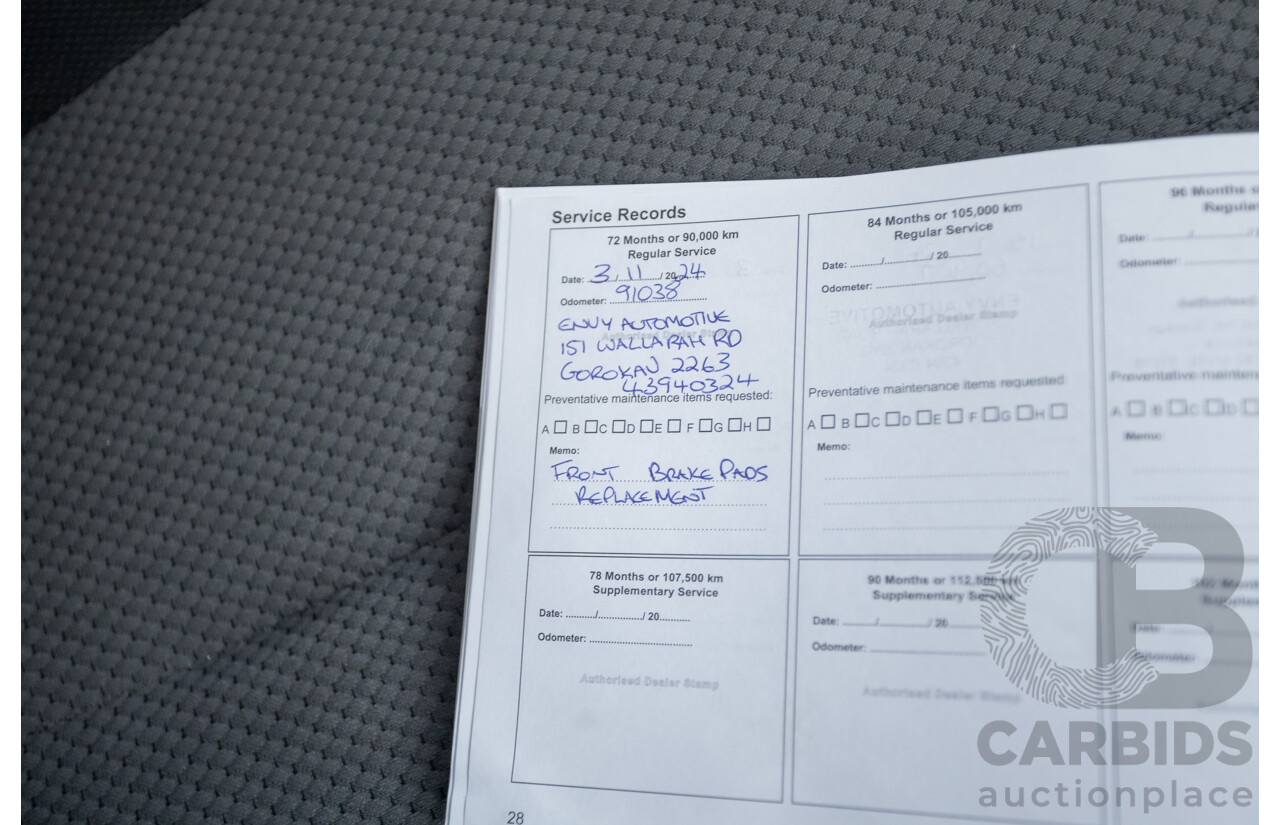 Service Records
72 Months or 90,000 km
Regular Service
Date: 3 / 11 / 2024
Odometer: 91038
Authorised Dealer Stamp
ENVY AUTOMOTIVE
151 WALLARAH RD
GOROKAN 2263
43940324
Preventative maintenance items requested:
A B C D E F G H
Memo:
FRONT BRAKE PADS
REPLACEMENT
84 Months or 105,000 km
Regular Service
Date: ........../.............../ 20..........
Odometer: ..................................
Authorised Dealer Stamp
ENVY AUTOMOTIVE
Preventative maintenance items requested
A B C D E F G H
Memo:
96 Months
Regular
Date:
Odometer:
Authorised
Preventative
A B C D
Memo:
78 Months or 107,500 km
Supplementary Service
Date: ........../.............../ 20..........
Odometer: ..................................
Authorised Dealer Stamp
90 Months or 112,500 km
Supplementary Service
Date: ........../.............../ 20
Odometer: ..................................
Authorised Dealer Stamp
Date:
Odometer:
28
CB
CARBIDS
auctionplace